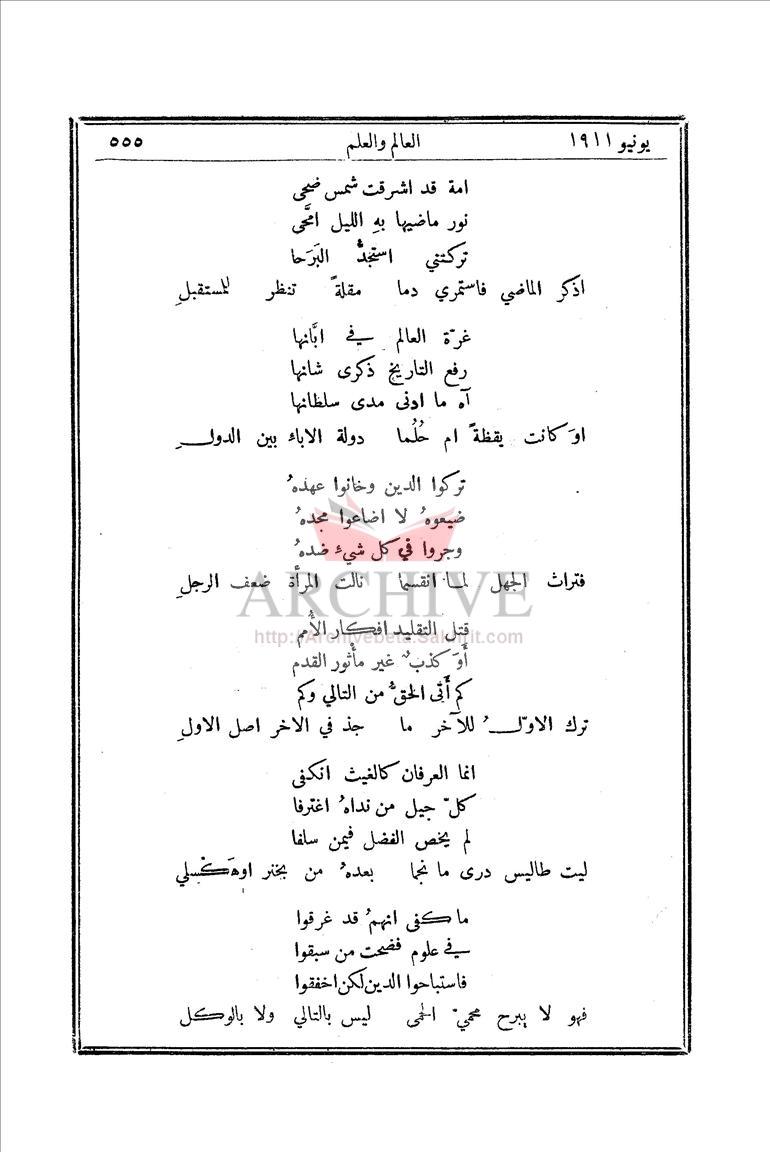 يونيو ١٩١١ العالم والعلم ٥٥٥
امة قد اشرقت شمس ضحى
نور ماضيها بهِ الليل امَّحى
تركتني استجدُّ البَرَحا
اذكر الماضي فاستمري دما مقلةً تنظر للمستقبلِ
غرّة العالم في ابَّانها
رفع التاريخ ذكرى شانها
آه ما ادنى مدى سلطانها
اوَ كانت يقظةً ام حُلُما دولة الاباء بين الدولـِ
تركوا الدين وخانوا عهدهُ
ضيعوهُ لا اضاعوا مجدهُ
وجروا في كل شيء ضدهُ
فتراث الجهل لما انقسما نالت المرأة ضعف الرجلِ
ARCHIVE
قتل التقليد افكار الأُمم
http://Archivebeta.Sakhrit.com
أَوَ كذبٌ غير مأثور القدم
كم أَتى الحقُّ من التالي وكم
ترك الاوّلـُ للآخر ما جذ في الاخر اصل الاولِ
انما العرفان كالغيث انكفى
كلّ جيل من نداهُ اغترفا
لم يخص الفضل فيمن سلفا
ليت طاليس درى ما نجما بعدهُ من بخنر اوهَكْسلي
ما كفى انهمُ قد غرقوا
في علوم فضحت من سبقوا
فاستباحوا الدين لكن اخفقوا
فهو لا يبرح محميّ الحمى ليس بالتالي ولا بالوكل